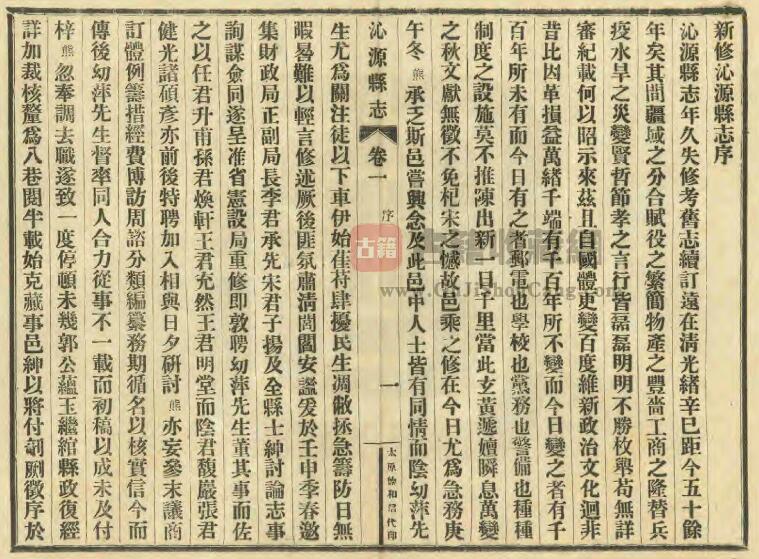 新修沁源縣志序
沁源縣志年久失修考舊志續訂遠在淸光緒辛巳距今五十餘
年矣其間疆域之分合賦役之繁簡物產之豐嗇工商之隆替兵
疫水旱之災變賢哲節孝之言行皆磊磊明明不勝枚舉苟無詳
審紀載何以昭示來茲且自國體更變百度維新政治文化迥非
昔比因革損益萬緒千端有千百年所不變而今日變之者有千
百年所未有而今日有之者郵電也學校也黨務也警備也種種
制度之設施莫不推陳出新一日千里當此玄黃遞嬗瞬息萬變
之秋文獻無徵不免杞宋之憾故邑乘之修在今日尤爲急務庚
午冬熊承乏斯邑嘗興念及此邑中人士皆有同情而陰幼萍先
沁源縣志
卷一
序
一
太原 和 代印
生尤爲關注徒以下車伊始萑苻肆擾民生凋敝拯急籌防日無
暇晷難以輕言修述厥後匪氛肅淸閭閻安謐爰於壬申季春邀
集財政局正副局長李君承先宋君子揚及全縣士紳討論志事
詢謀僉同遂呈准省憲設局重修卽敦聘幼萍先生董其事而佐
之以任君升甫孫君煥軒王君充然王君明堂而陰君馥嚴張君
健光諸碩彥亦前後特聘加入相與日夕硏討熊亦妄參末議商
訂體例籌措經費博訪周諮分類編纂務期循名以核實信今而
傳後幼萍先生督率同人合力從事不一載而初稿以成未及付
梓熊忽奉調去職遂致一度停頓未幾郭公蘊玉繼綰縣政復經
詳加裁核釐爲八卷閱半載始克蕆事邑紳以將付剞劂徵序於
古籍